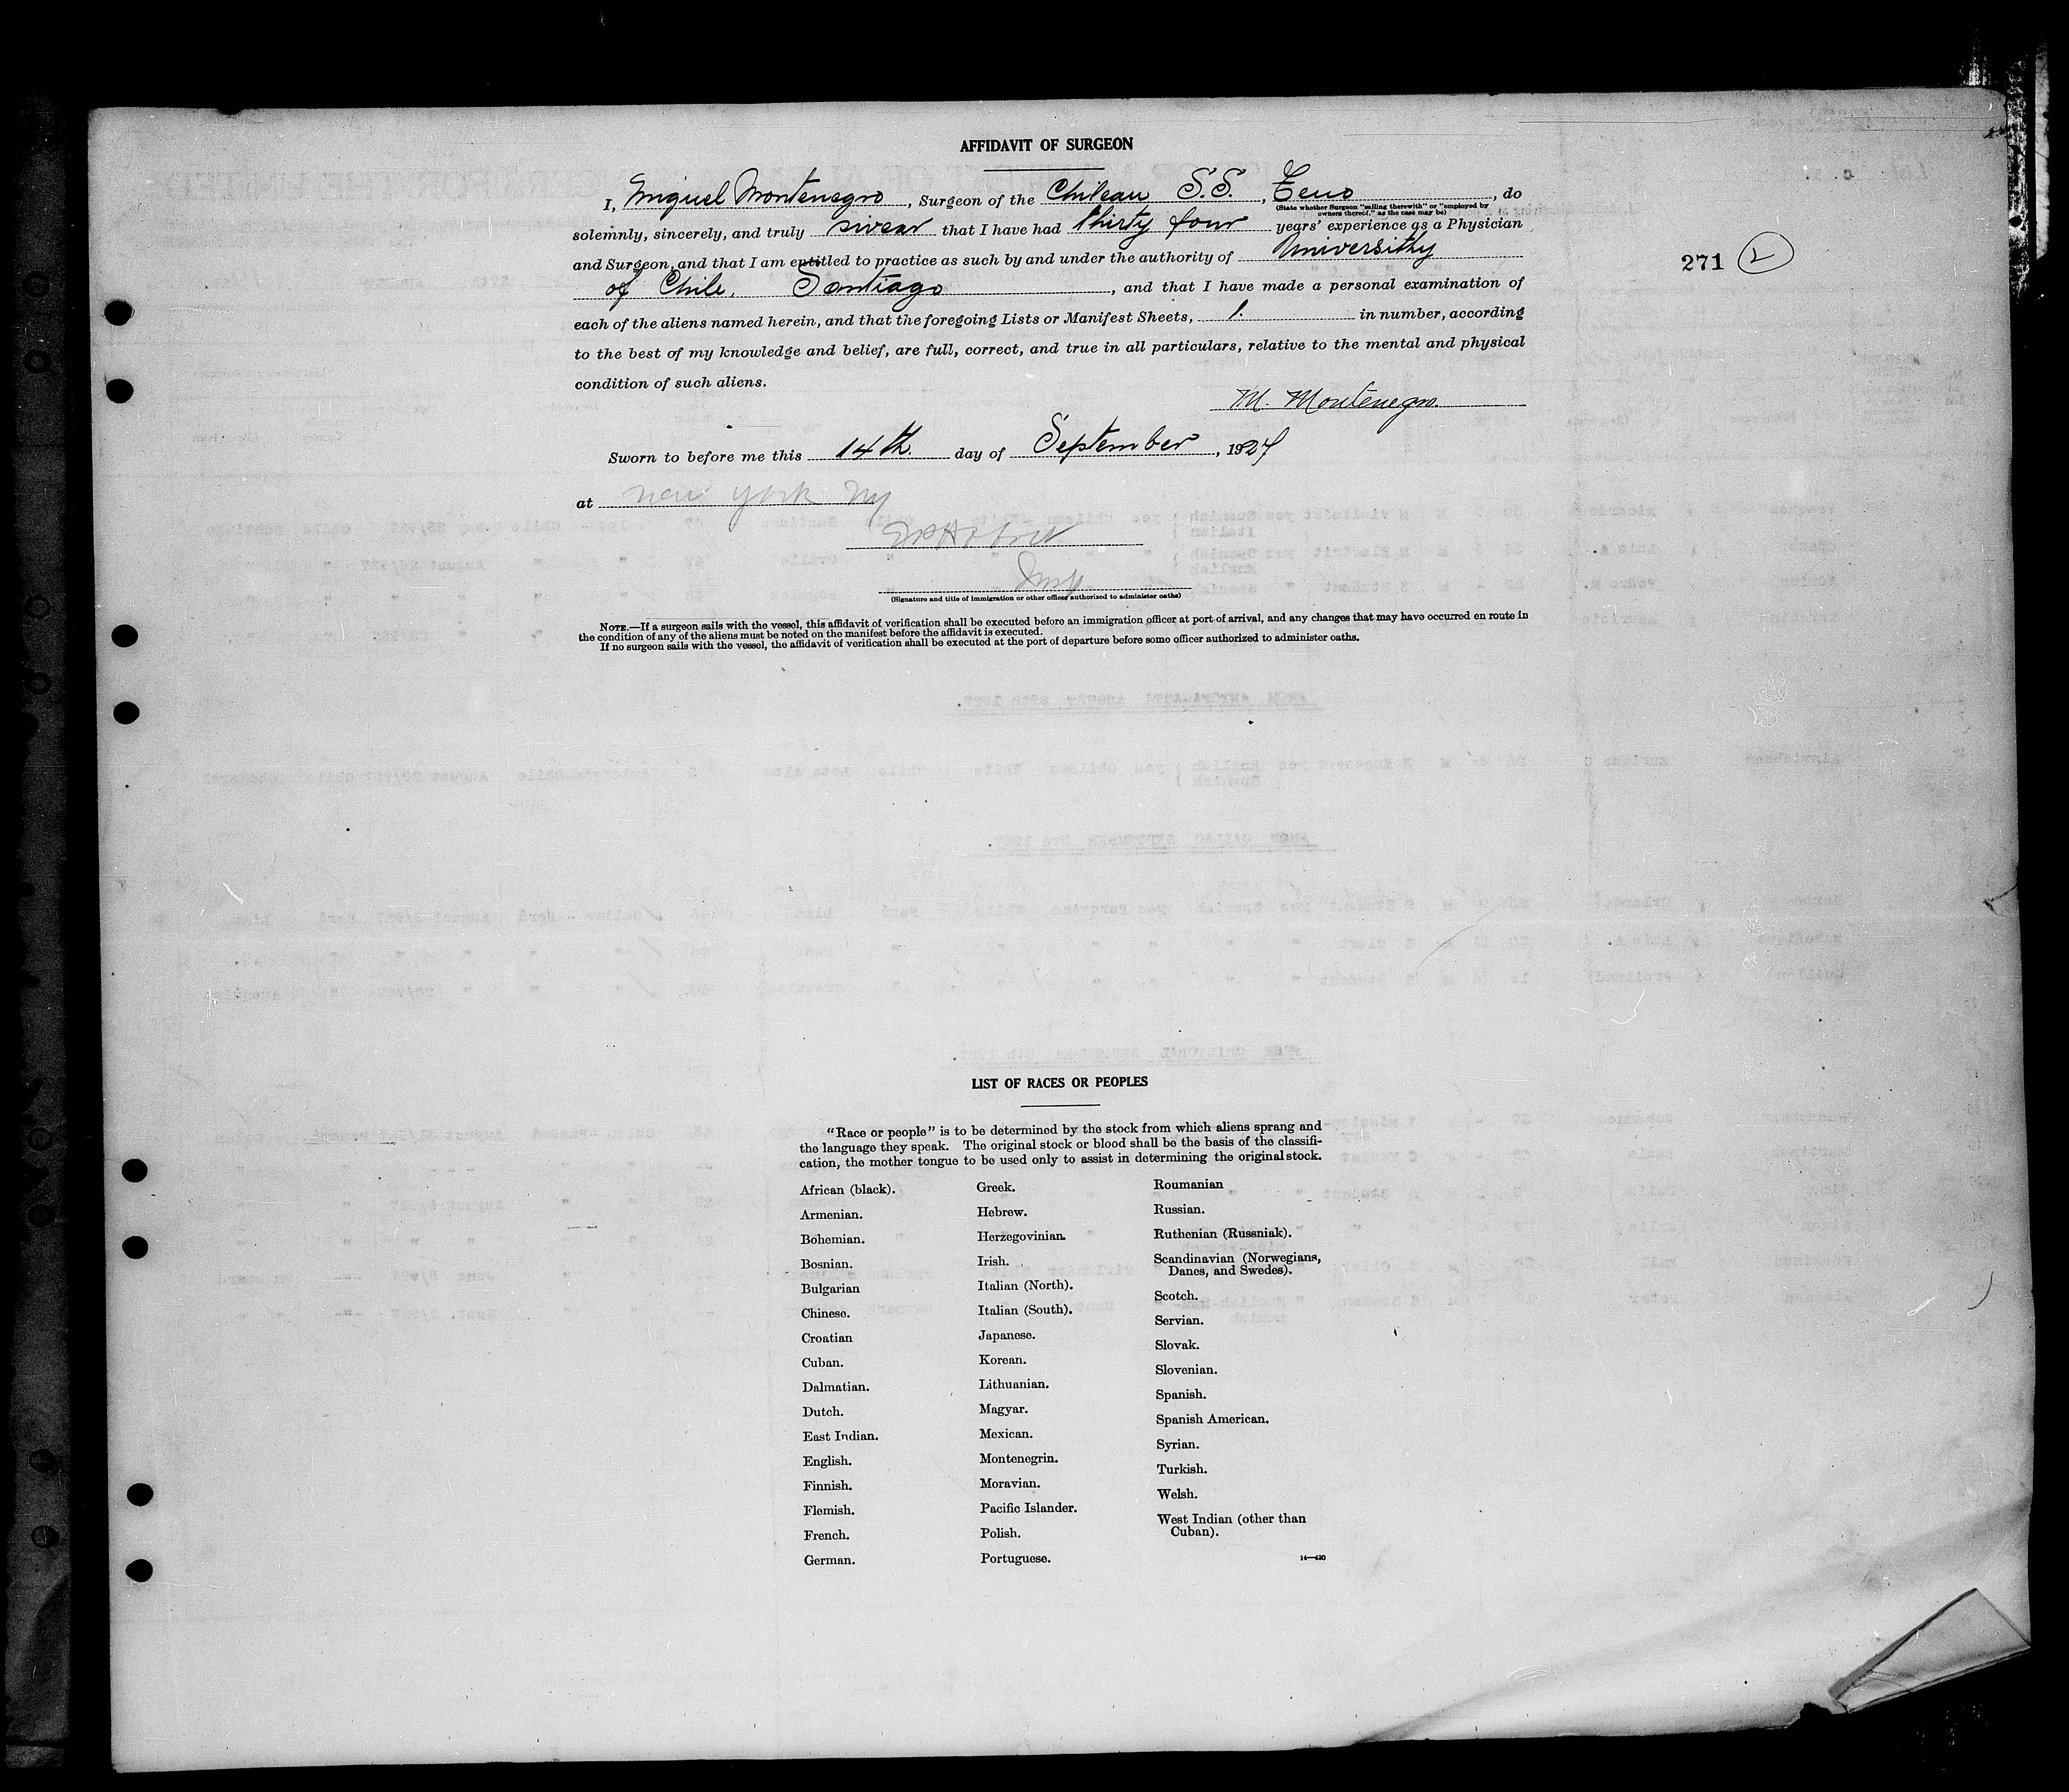 AFFIDAVIT OF SURGEON
I, Miguel Montenegro, Surgeon of the Chilean S.S., Teno, do
(State whether Surgeon "sailing therewith" or "employed by
owners thereof," as the case may be)
solemnly, sincerely, and truly swear that I have had thirty four years' experience as a Physician
and Surgeon, and that I am entitled to practice as such by and under the authority of Universithy
of Chile, Santiago, and that I have made a personal examination of
each of the aliens named herein, and that the foregoing Lists or Manifest Sheets, 1. in number, according
to the best of my knowledge and belief, are full, correct, and true in all particulars, relative to the mental and physical
condition of such aliens.
M. Montenegro.
Sworn to before me this 14th. day of September, 1927
at New York Ny
(Signature and title of immigration or other officer authorized to administer oaths)
NOTE.—If a surgeon sails with the vessel, this affidavit of verification shall be executed before an immigration officer at port of arrival, and any changes that may have occurred en route in
the condition of any of the aliens must be noted on the manifest before the affidavit is executed.
If no surgeon sails with the vessel, the affidavit of verification shall be executed at the port of departure before some officer authorized to administer oaths.
271 2
LIST OF RACES OR PEOPLES
"Race or people" is to be determined by the stock from which aliens sprang and
the language they speak. The original stock or blood shall be the basis of the classifi-
cation, the mother tongue to be used only to assist in determining the original stock.
African (black).
Armenian.
Bohemian.
Bosnian.
Bulgarian
Chinese.
Croatian
Cuban.
Dalmatian.
Dutch.
East Indian.
English.
Finnish.
Flemish.
French.
German.
Greek.
Hebrew.
Herzegovinian.
Irish.
Italian (North).
Italian (South).
Japanese.
Korean.
Lithuanian.
Magyar.
Mexican.
Montenegrin.
Moravian.
Pacific Islander.
Polish.
Portuguese.
Roumanian
Russian.
Ruthenian (Russniak).
Scandinavian (Norwegians,
Danes, and Swedes).
Scotch.
Servian.
Slovak.
Slovenian.
Spanish.
Spanish American.
Syrian.
Turkish.
Welsh.
West Indian (other than
Cuban).
14—430